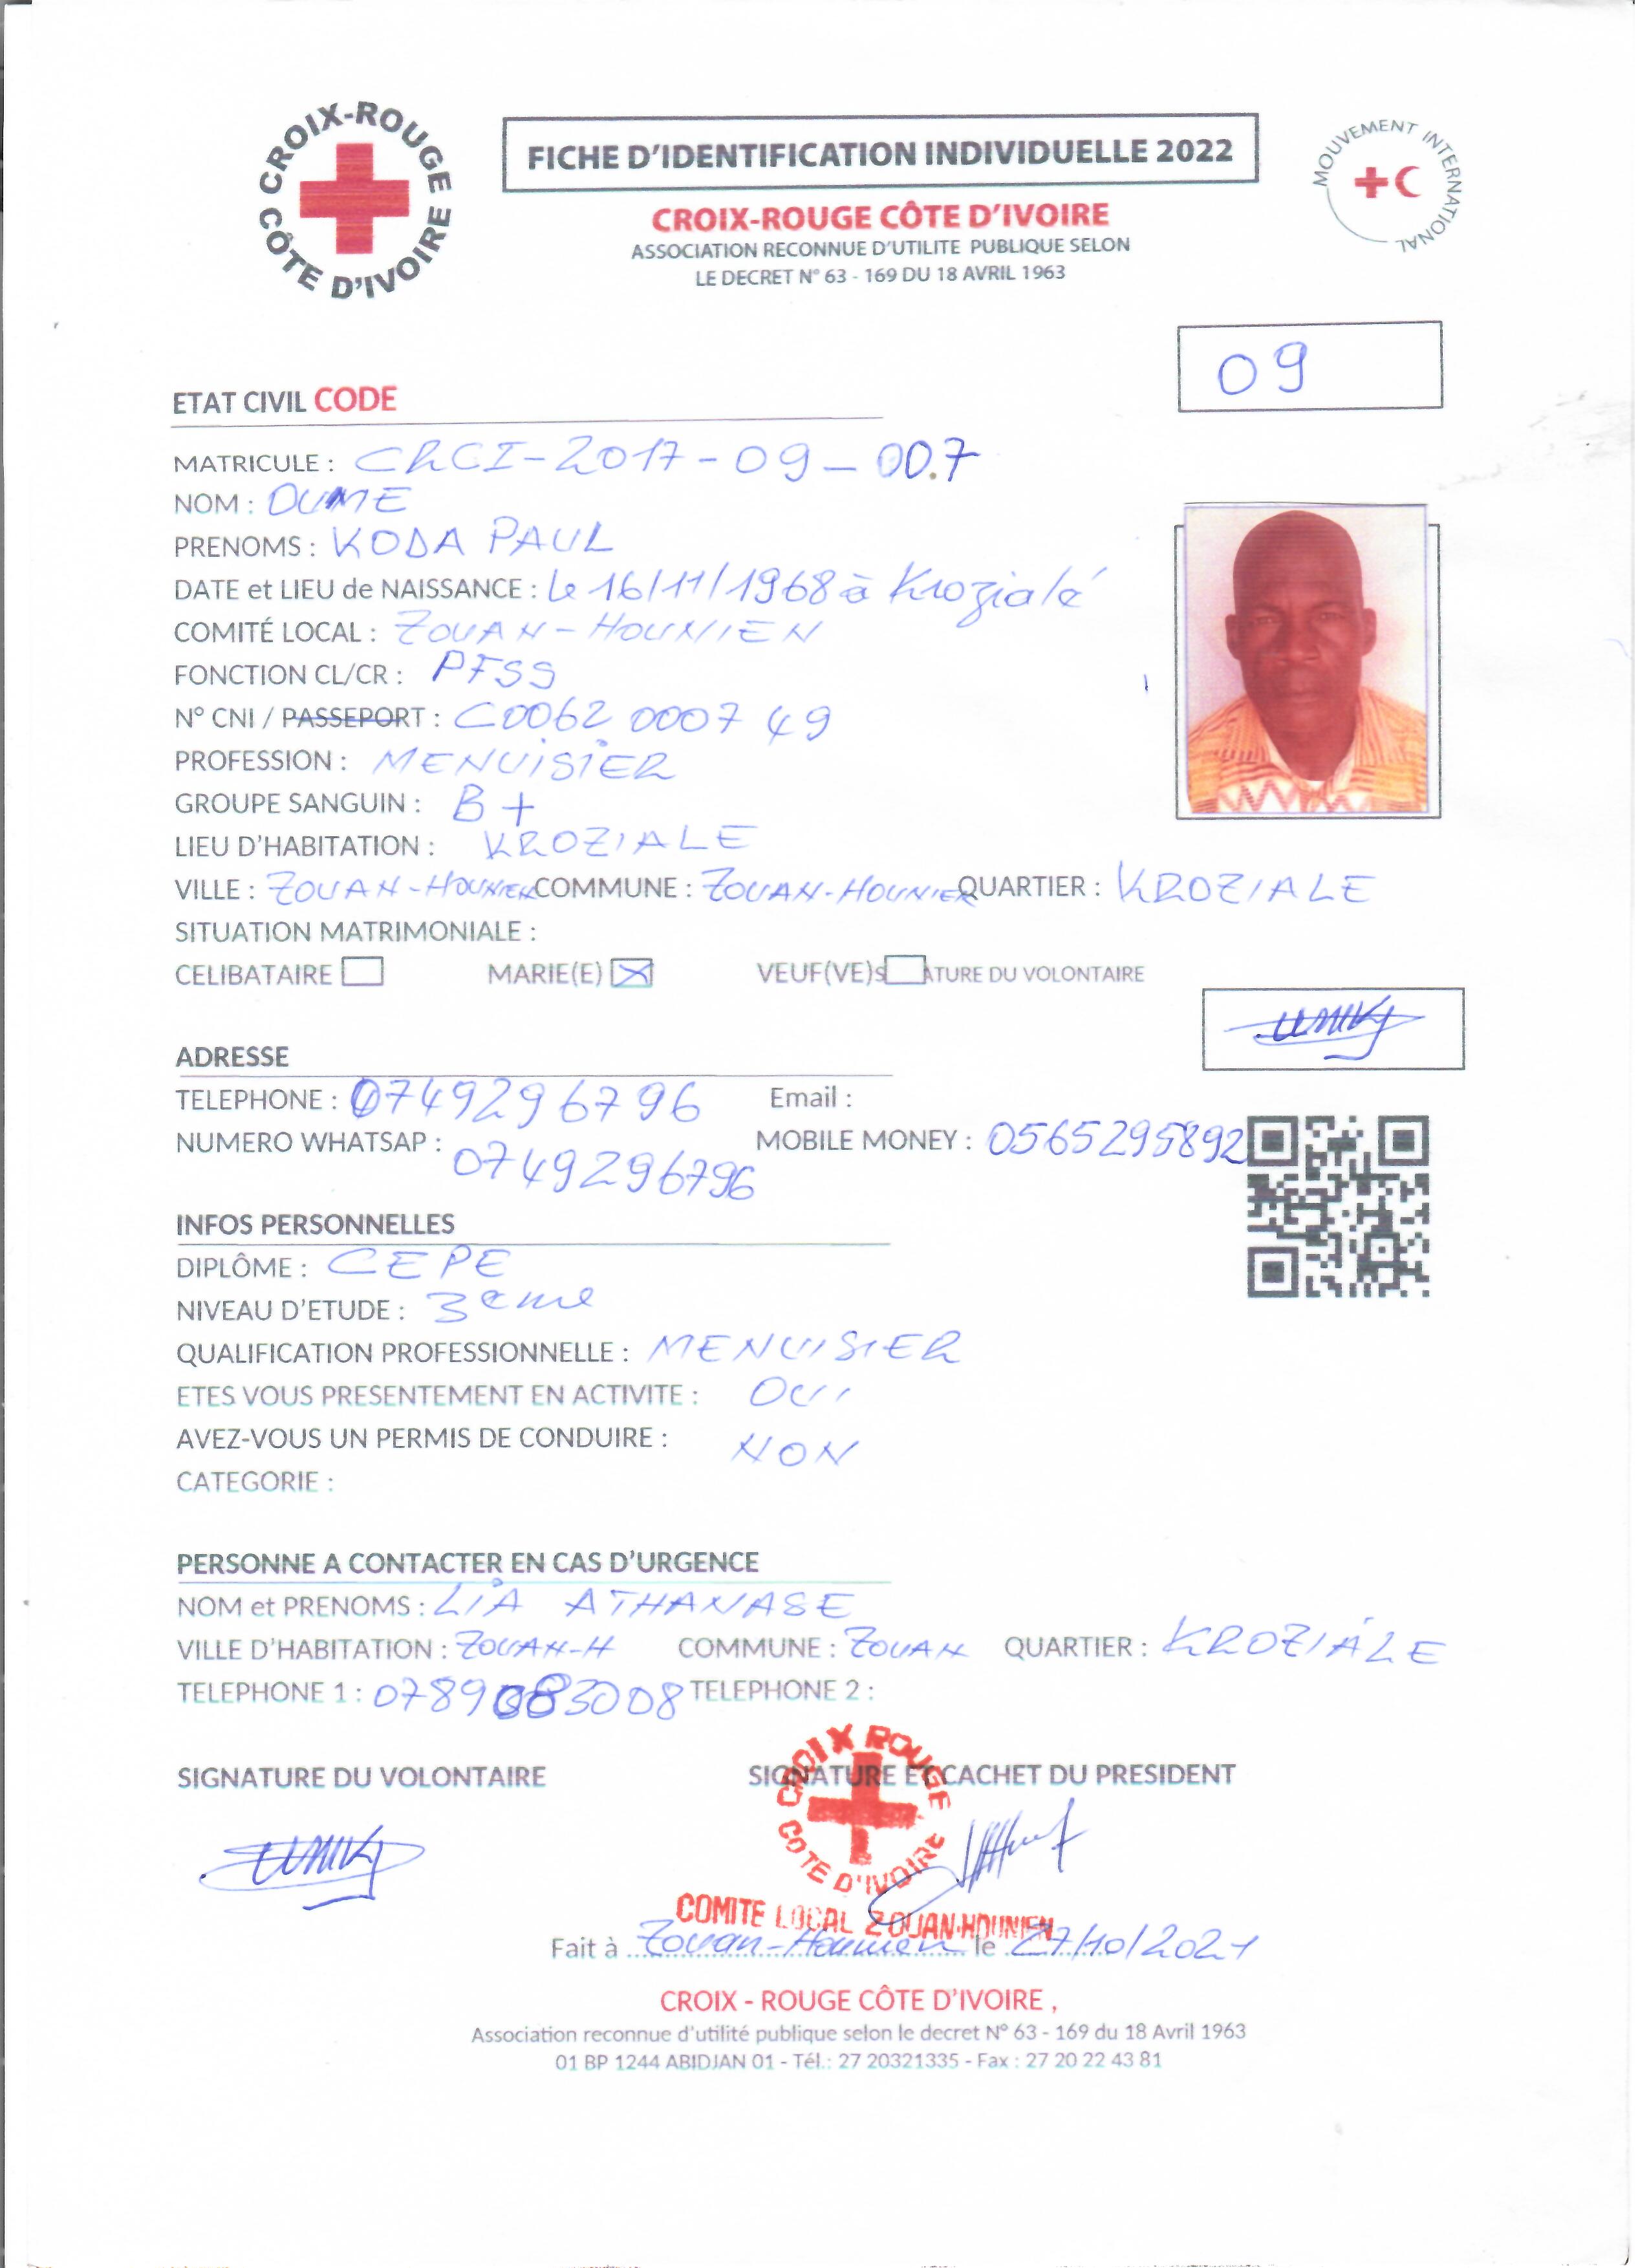 CROIX-ROUGE CÔTE D'IVOIRE
FICHE D'IDENTIFICATION INDIVIDUELLE 2022
MOUVEMENT INTERNATIONAL
CROIX-ROUGE CÔTE D'IVOIRE
ASSOCIATION RECONNUE D'UTILITE PUBLIQUE SELON
LE DECRET N° 63 - 169 DU 18 AVRIL 1963
09
ETAT CIVIL CODE
MATRICULE : CRCI-2017-09-007
NOM : OUME
PRENOMS : KODA PAUL
DATE et LIEU de NAISSANCE : Le 16/11/1968 à Krozialé
COMITÉ LOCAL : ZOUAN-HOUNIEN
FONCTION CL/CR : PFSS
N° CNI / PASSEPORT : C0062 0007 49
PROFESSION : MENUISIER
GROUPE SANGUIN : B+
LIEU D'HABITATION : KROZIALE
VILLE : ZOUAN-HOUNIEN COMMUNE : ZOUAN-HOUNIEN QUARTIER : KROZIALE
SITUATION MATRIMONIALE :
CELIBATAIRE MARIE(E) VEUF(VE) S ATURE DU VOLONTAIRE
ADRESSE
TELEPHONE : 0749296796 Email :
NUMERO WHATSAP : 0749296796 MOBILE MONEY : 0565295892
INFOS PERSONNELLES
DIPLÔME : CEPE
NIVEAU D'ETUDE : 3eme
QUALIFICATION PROFESSIONNELLE : MENUISIER
ETES VOUS PRESENTEMENT EN ACTIVITE : OUI
AVEZ-VOUS UN PERMIS DE CONDUIRE : NON
CATEGORIE :
PERSONNE A CONTACTER EN CAS D'URGENCE
NOM et PRENOMS : LIA ATHANASE
VILLE D'HABITATION : ZOUAN-H COMMUNE : ZOUAN QUARTIER : KROZIALE
TELEPHONE 1 : 0789083008 TELEPHONE 2 :
SIGNATURE DU VOLONTAIRE SIGNATURE ET CACHET DU PRESIDENT
CROIX ROUGE COTE D'IVOIRE
COMITE LOCAL ZOUAN-HOUNIEN
Fait à Zouan-Hounien le 27/10/2021
CROIX - ROUGE CÔTE D'IVOIRE ,
Association reconnue d'utilité publique selon le decret N° 63 - 169 du 18 Avril 1963
01 BP 1244 ABIDJAN 01 - Tél.: 27 20321335 - Fax : 27 20 22 43 81